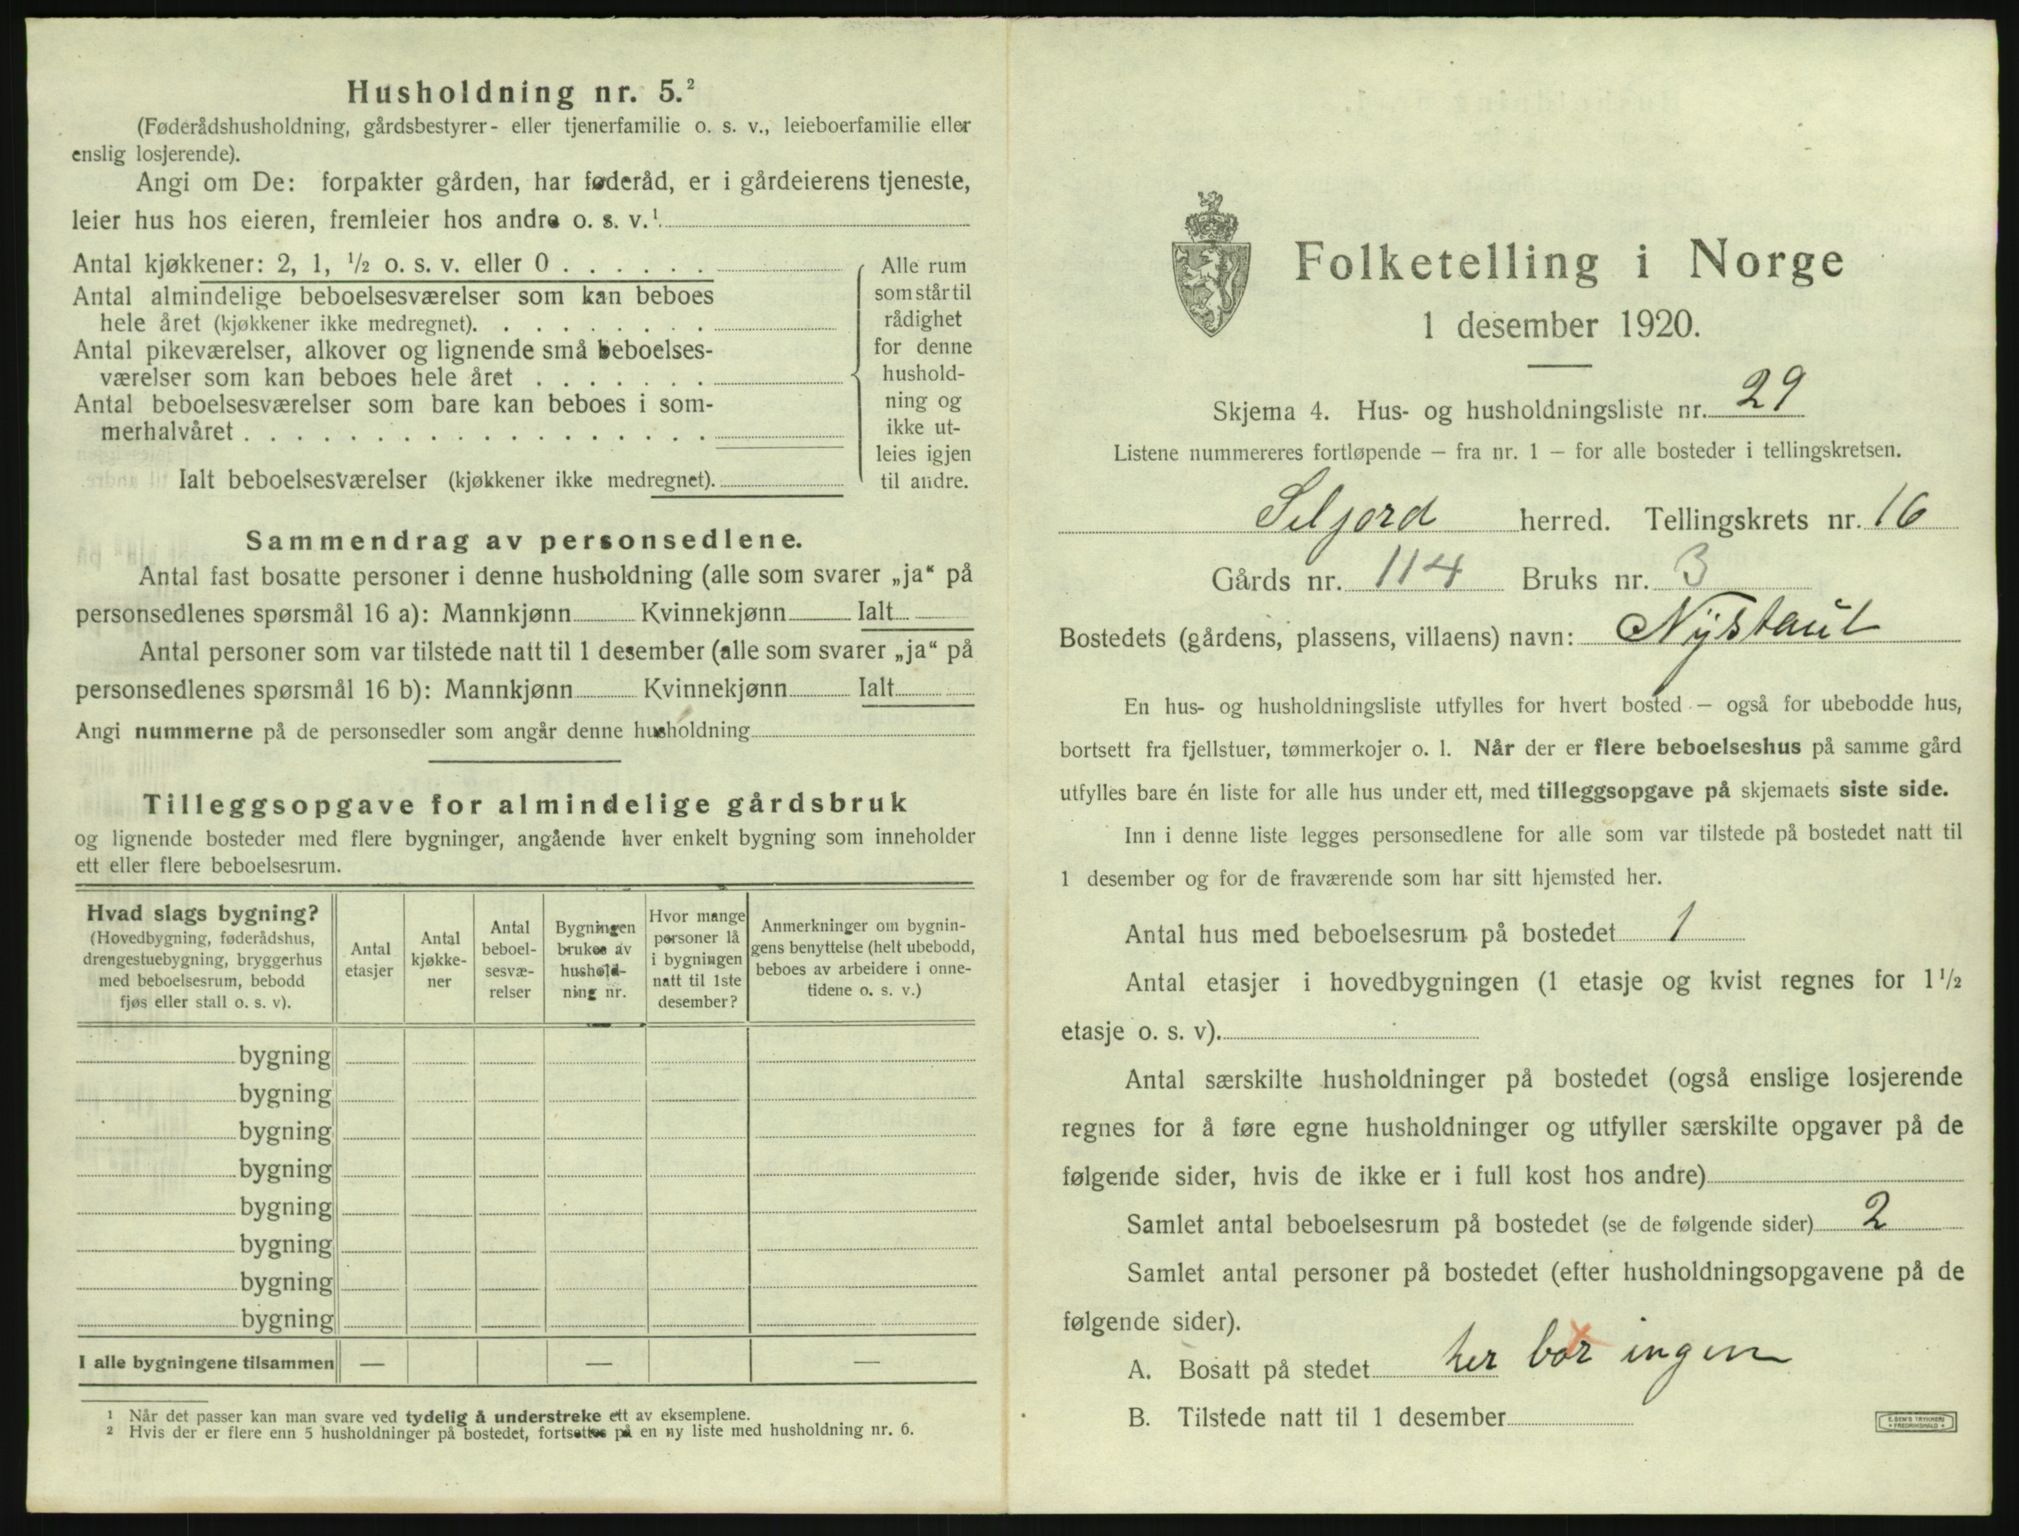 Husholdning nr. 5.²
(Føderådshusholdning, gårdsbestyrer- eller tjenerfamilie o. s. v., leieboerfamilie eller
enslig losjerende).
Angi om De: forpakter gården, har føderåd, er i gårdeierens tjeneste,
leier hus hos eieren, fremleier hos andre o. s. v.¹
Antal kjøkkener: 2, 1, ½ o. s. v. eller 0 . . . . . .
Antal almindelige beboelsesværelser som kan beboes
hele året (kjøkkener ikke medregnet). . . . . . . . . .
Antal pikeværelser, alkover og lignende små beboelses-
værelser som kan beboes hele året . . . . . . .
Antal beboelsesværelser som bare kan beboes i som-
merhalvåret . . . . . . . . . . . . . . . . . .
Ialt beboelsesværelser (kjøkkener ikke medregnet).
Alle rum
som står til
rådighet
for denne
hushold-
ning og
ikke ut-
leies igjen
til andre.
Sammendrag av personsedlene.
Antal fast bosatte personer i denne husholdning (alle som svarer „ja“ på
personsedlenes spørsmål 16 a): Mannkjønn Kvinnekjønn Ialt
Antal personer som var tilstede natt til 1 desember (alle som svarer „ja“ på
personsedlenes spørsmål 16 b): Mannkjønn Kvinnekjønn Ialt
Angi nummerne på de personsedler som angår denne husholdning
Tilleggsopgave for almindelige gårdsbruk
og lignende bosteder med flere bygninger, angående hver enkelt bygning som inneholder
ett eller flere beboelsesrum.
Hvad slags bygning?
(Hovedbygning, føderådshus,
drengestuebygning, bryggerhus
med beboelsesrum, bebodd
fjøs eller stall o. s. v).
Antal
etasjer
Antal
kjøkke-
ner
Antal
beboel-
sesvæ-
relser
Bygningen
brukes av
hushold-
ning nr.
Hvor mange
personer lå
i bygningen
natt til 1ste
desember?
Anmerkninger om bygnin-
gens benyttelse (helt ubebodd,
beboes av arbeidere i onne-
tidene o. s. v.)
bygning
bygning
bygning
bygning
bygning
bygning
bygning
bygning
I alle bygningene tilsammen — — —
¹ Når det passer kan man svare ved tydelig å understreke ett av eksemplene.
² Hvis der er flere enn 5 husholdninger på bostedet, fortsettes på en ny liste med husholdning nr. 6.
Folketelling i Norge
1 desember 1920.
Skjema 4. Hus- og husholdningsliste nr. 29
Listene nummereres fortløpende – fra nr. 1 – for alle bosteder i tellingskretsen.
Seljord herred. Tellingskrets nr. 16
Gårds nr. 114 Bruks nr. 3
Bostedets (gårdens, plassens, villaens) navn: Nystaul
En hus- og husholdningsliste utfylles for hvert bosted – også for ubebodde hus,
bortsett fra fjellstuer, tømmerkojer o. l. Når der er flere beboelseshus på samme gård
utfylles bare én liste for alle hus under ett, med tilleggsopgave på skjemaets siste side.
Inn i denne liste legges personsedlene for alle som var tilstede på bostedet natt til
1 desember og for de fraværende som har sitt hjemsted her.
Antal hus med beboelsesrum på bostedet 1
Antal etasjer i hovedbygningen (1 etasje og kvist regnes for 1½
etasje o. s. v).
Antal særskilte husholdninger på bostedet (også enslige losjerende
regnes for å føre egne husholdninger og utfyller særskilte opgaver på de
følgende sider, hvis de ikke er i full kost hos andre)
Samlet antal beboelsesrum på bostedet (se de følgende sider) 2
Samlet antal personer på bostedet (efter husholdningsopgavene på de
følgende sider).
A. Bosatt på stedet her bor ingen
B. Tilstede natt til 1 desember
E. SEM'S TRYKKERI
FREDRIKSHALD